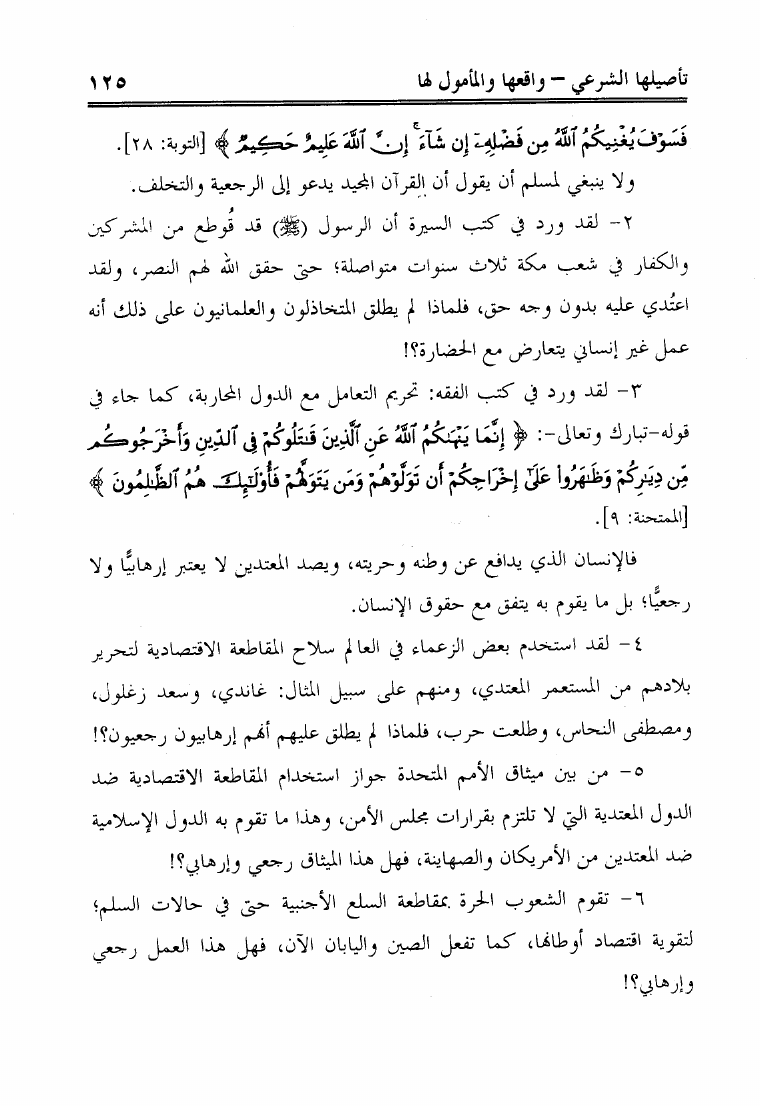 تأصيلها الشرعي – واقعها والمأمول لها ١٢٥
فَسَوْفَ يُغْنِيكُمُ ٱللَّهُ مِن فَضْلِهِۦٓ إِن شَآءَ ۚ إِنَّ ٱللَّهَ عَلِيمٌ حَكِيمٌ ﴾ [التوبة: ٢٨].
ولا ينبغي لمسلم أن يقول أن القرآن المجيد يدعو إلى الرجعية والتخلف.
٢- لقد ورد في كتب السيرة أن الرسول (ﷺ) قد قُوطع من المشركين
والكفار في شعب مكة ثلاث سنوات متواصلة؛ حتى حقق الله لهم النصر، ولقد
اعتُدي عليه بدون وجه حق، فلماذا لم يطلق المتخاذلون والعلمانيون على ذلك أنه
عمل غير إنساني يتعارض مع الحضارة؟!
٣- لقد ورد في كتب الفقه: تحريم التعامل مع الدول المحاربة، كما جاء في
قوله-تبارك وتعالى-: ﴿ إِنَّمَا يَنْهَىٰكُمُ ٱللَّهُ عَنِ ٱلَّذِينَ قَٰتَلُوكُمْ فِى ٱلدِّينِ وَأَخْرَجُوكُم
مِّن دِيَٰرِكُمْ وَظَٰهَرُوا۟ عَلَىٰٓ إِخْرَاجِكُمْ أَن تَوَلَّوْهُمْ وَمَن يَتَوَلَّهُمْ فَأُو۟لَٰٓئِكَ هُمُ ٱلظَّٰلِمُونَ ﴾
[الممتحنة: ٩].
فالإنسان الذي يدافع عن وطنه وحريته، ويصد المعتدين لا يعتبر إرهابيًّا ولا
رجعيًّا؛ بل ما يقوم به يتفق مع حقوق الإنسان.
٤- لقد استخدم بعض الزعماء في العالم سلاح المقاطعة الاقتصادية لتحرير
بلادهم من المستعمر المعتدي، ومنهم على سبيل المثال: غاندي، وسعد زغلول،
ومصطفى النحاس، وطلعت حرب، فلماذا لم يطلق عليهم أنهم إرهابيون رجعيون؟!
٥- من بين ميثاق الأمم المتحدة جواز استخدام المقاطعة الاقتصادية ضد
الدول المعتدية التي لا تلتزم بقرارات مجلس الأمن، وهذا ما تقوم به الدول الإسلامية
ضد المعتدين من الأمريكان والصهاينة، فهل هذا الميثاق رجعي وإرهابي؟!
٦- تقوم الشعوب الحرة بمقاطعة السلع الأجنبية حتى في حالات السلم؛
لتقوية اقتصاد أوطانها، كما تفعل الصين واليابان الآن، فهل هذا العمل رجعي
وإرهابي؟!